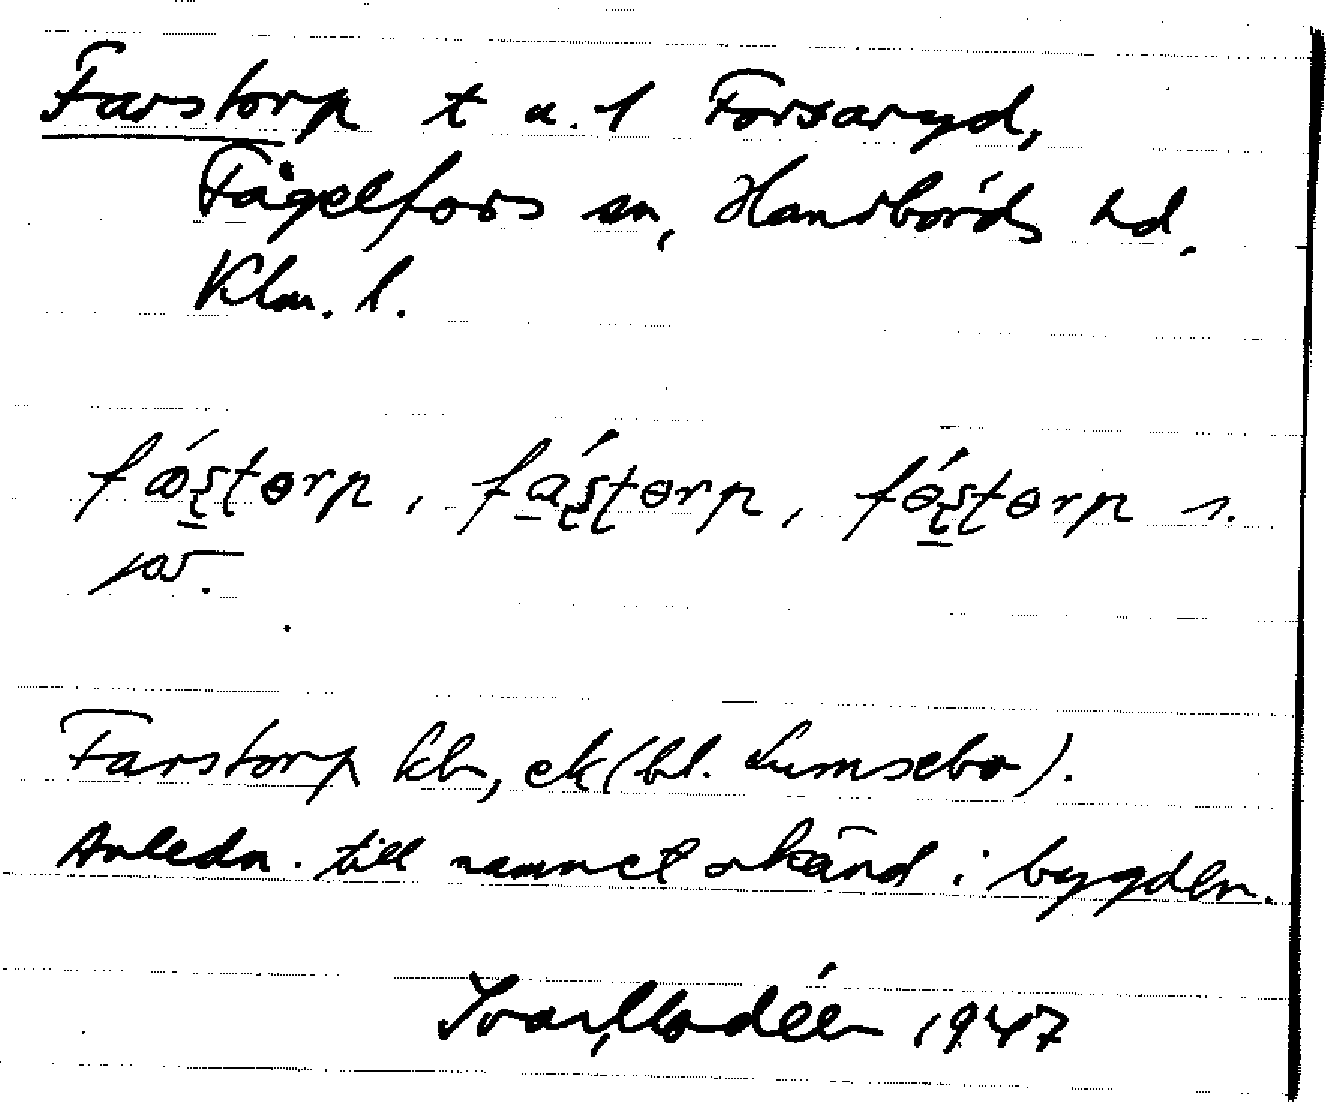 Farstorp t u. 1 Forsaryd,
Fågelfors sn, Handbörds hd.
Klm. l.
fǿs̱torp, fás̱torp, fɵ́s̱torp
Farstorp kb, ek (bl. Lumsebo).
Anledn. till namnet okänd i bygden.
Ivar Modéer 1947